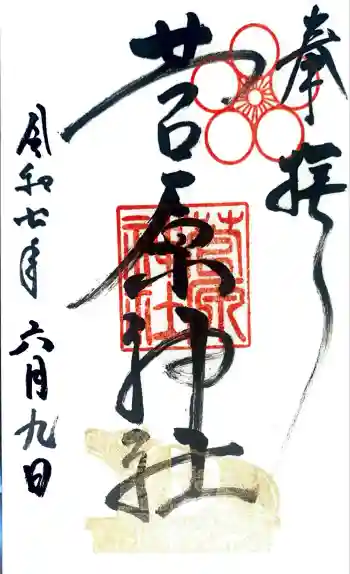 奉拝
菅原神社
菅原
神社
令和七年
六月九日